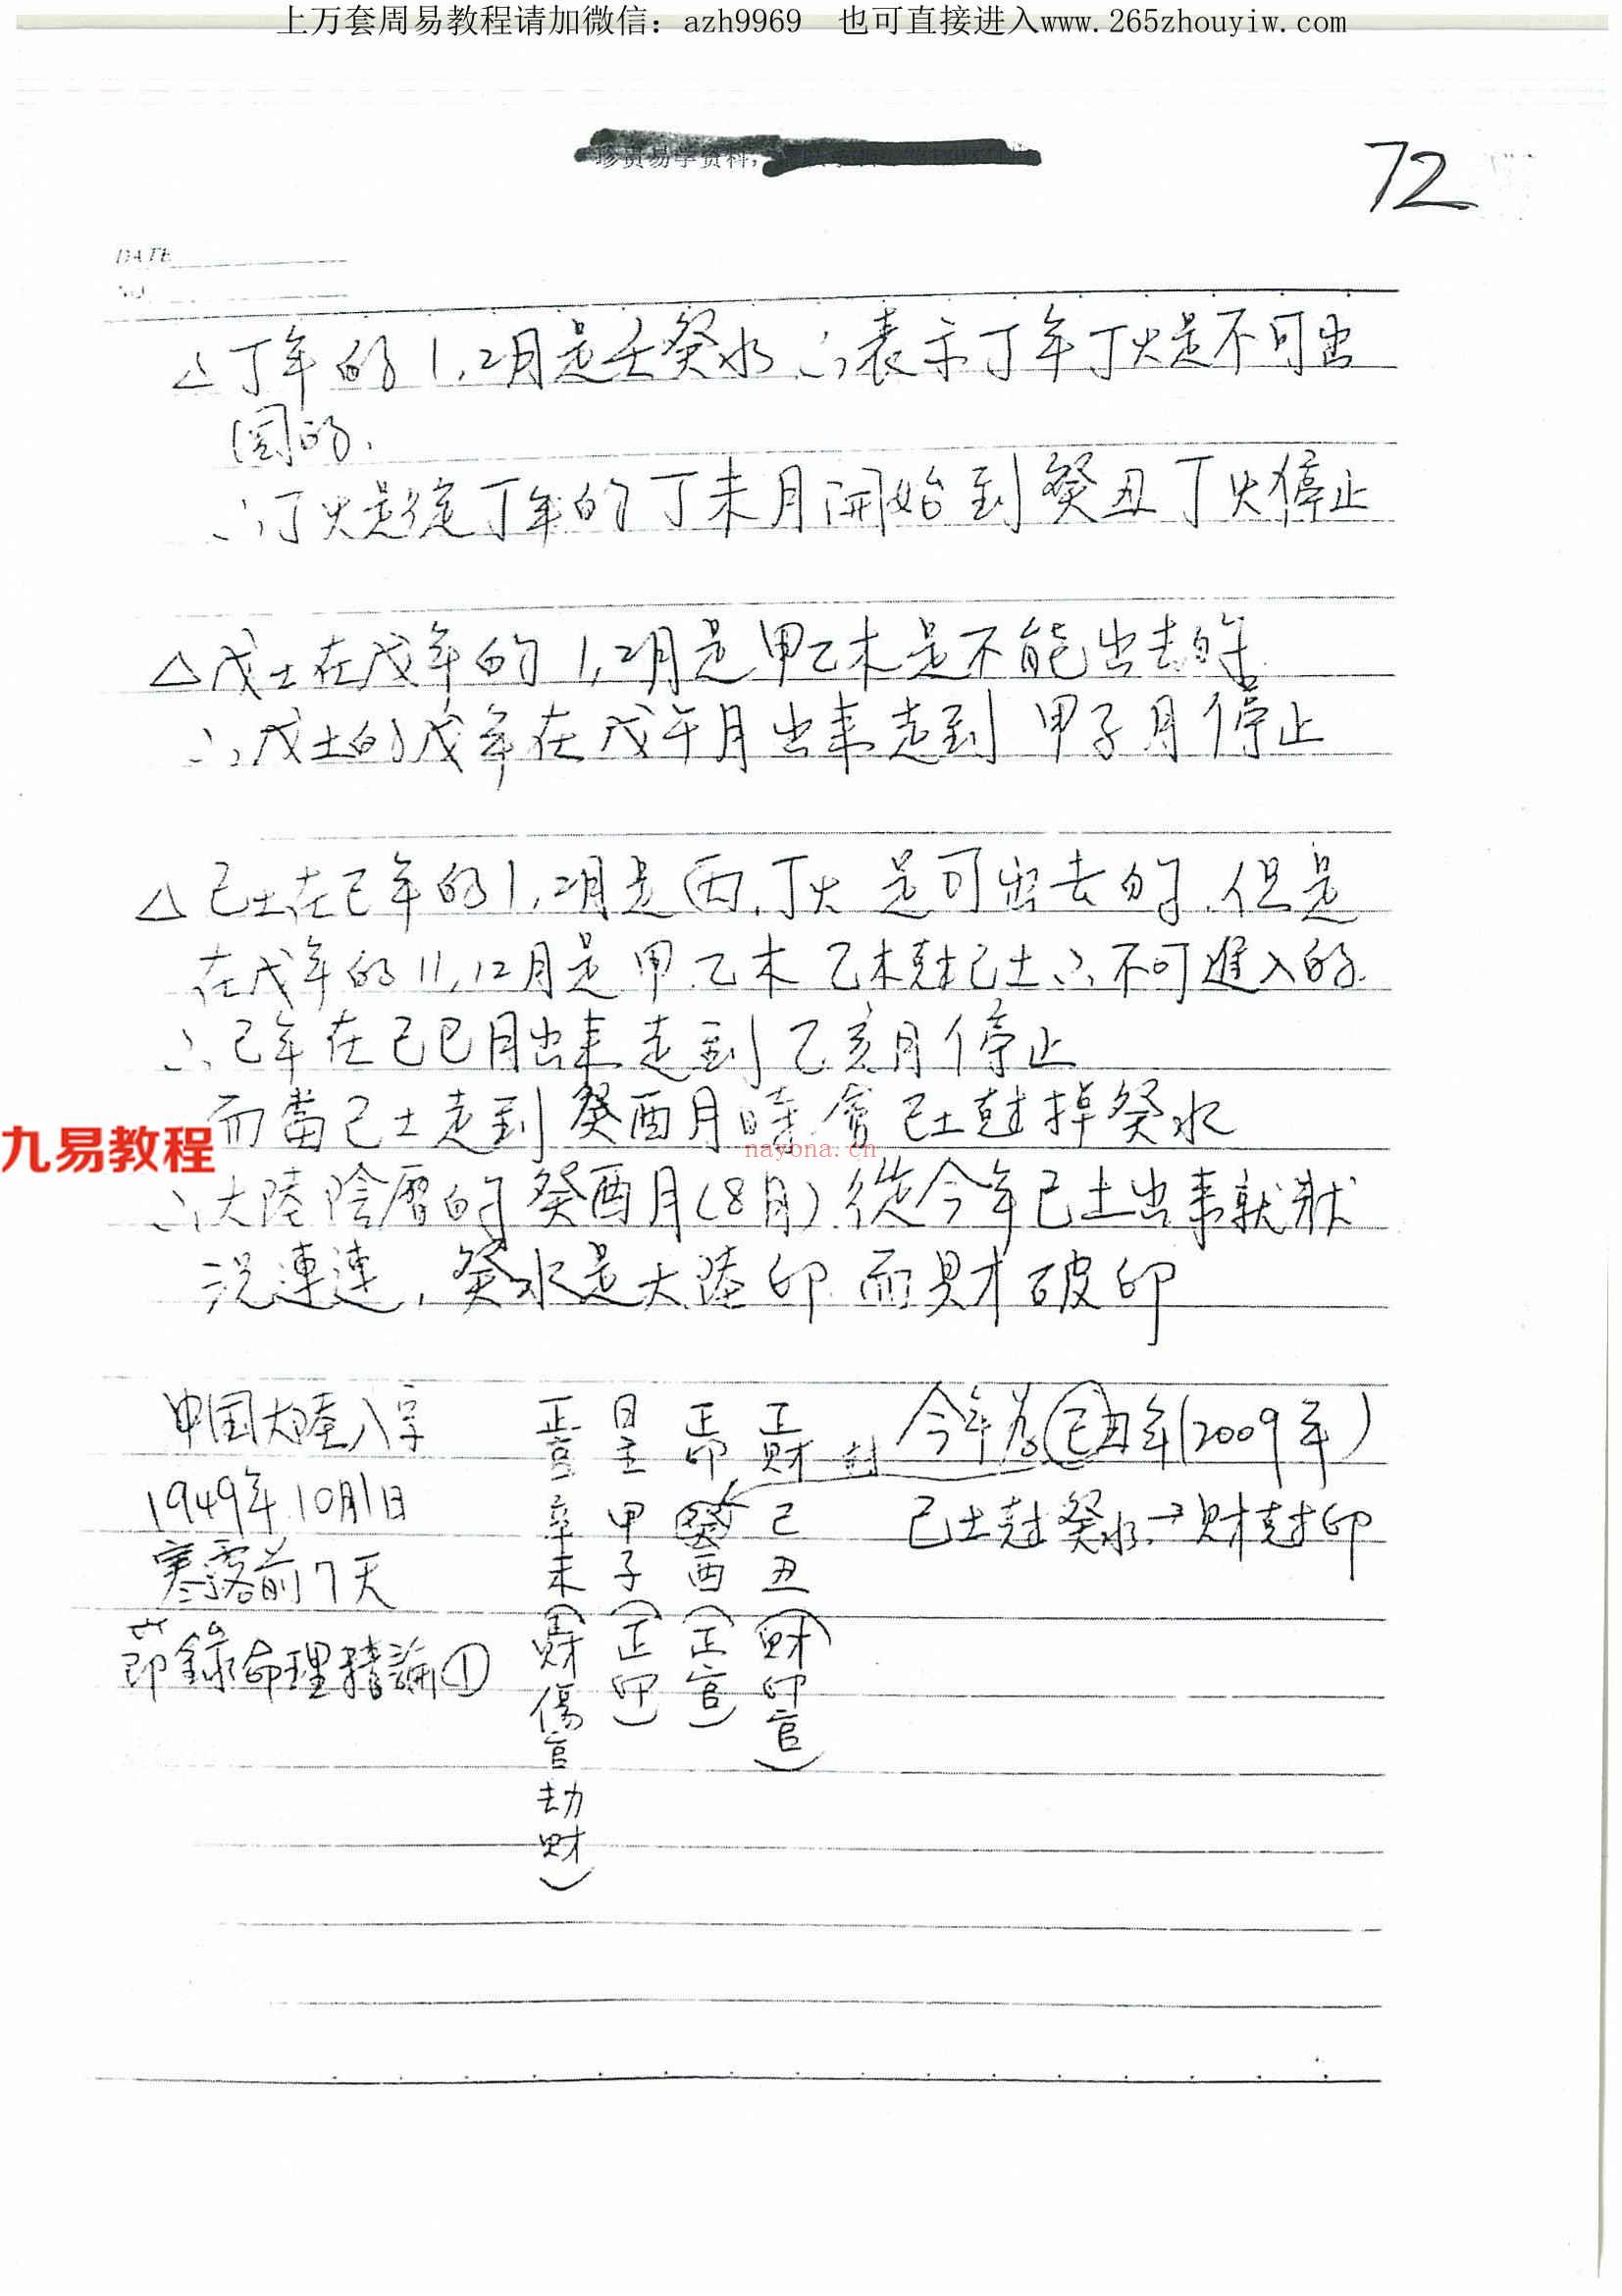 上万套周易教程请加微信：azh9969　也可直接进入www.265zhouyiw.com
珍贵易学资料，
72
DATE
NO.
△丁年的1,2月是壬癸水∴表示丁年丁火是不可出
国的,
∴丁火是從丁年的丁未月開始到癸丑丁火停止
△戊土在戊年的1,2月是甲乙木是不能出去的
∴戊土的戊年在戊午月出来走到甲子月停止
△己土在己年的1,2月是丙,丁火是可出去的,但是
在戊年的11,12月是甲.乙木 乙木尅己土∴不可進入的.
∴己年在己巳月出来走到乙亥月停止
而當己土走到癸酉月時會己土尅掉癸水
九易教程
nayona.cn
∴大陸陰曆的癸酉月(8月)從今年己土出来就狀
況連連,癸水是大陸印 而財破印
中国大陸八字
1949年10月1日
寒露前7天
節錄命理精論①
正官 日主 正印 正財
辛 甲 癸 己
未 子 酉 丑
(財傷官劫財) (正印) (正官) (財印官)
尅
今年為己丑年(2009年)
己土尅癸水→財尅印